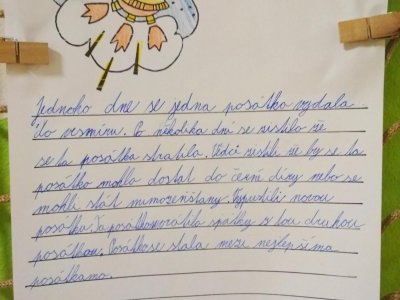 Jednoho dne se jedna posátka vydala
do vesmíru. Po několika dní se zistilo že
se ta posátka ztratila. Vědci řekli že by se ta
posátka mohla dostat do černé díry nebo se
mohli stát mimozemšťany. Vypustili novou
posátku. Ta posátka vrátila spátky s tou druhou
posátkou. Posátka se stala mezi nejlepšíma
posátkama.